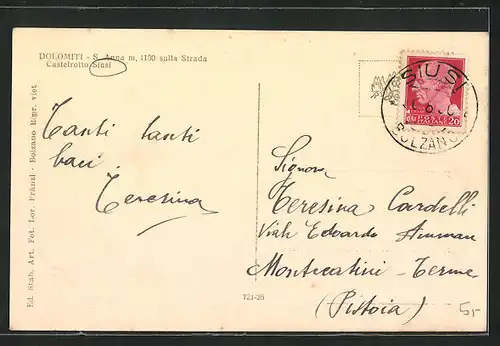 DOLOMITI - S. Anna m, 1100 sulla Strada
Castelrotto Siusi
Tanti tanti
baci
Teresina
SIUSI
BOLZANO
POSTE ITALIANE
20
Signora
Teresina Cardelli
Viale Edoardo Amman
Montecatini - Terme
(Pistoia)
5,-
721-26
Ed. Stab. Art. Fot. Lor. Fränzl - Bolzano Ripr. viet